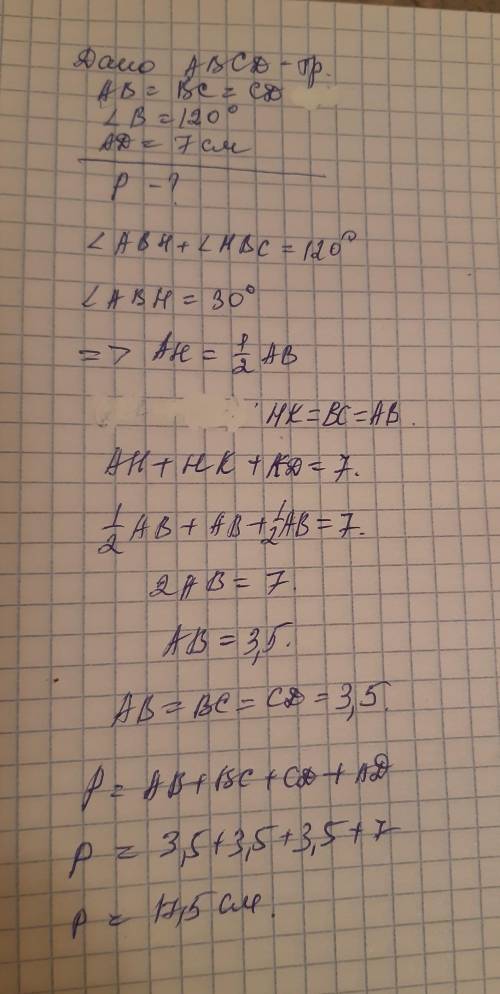 Дано ABCD - тр.
AB = BC = CD
∠B = 120°
AD = 7 см
P - ?
∠ABH + ∠HBC = 120°
∠ABH = 30°
=> AH = 1/2 AB
HK = BC = AB.
AH + HK + KD = 7.
1/2 AB + AB + 1/2 AB = 7.
2AB = 7.
AB = 3,5.
AB = BC = CD = 3,5.
P = AB + BC + CD + AD
P = 3,5 + 3,5 + 3,5 + 7
P = 17,5 см.